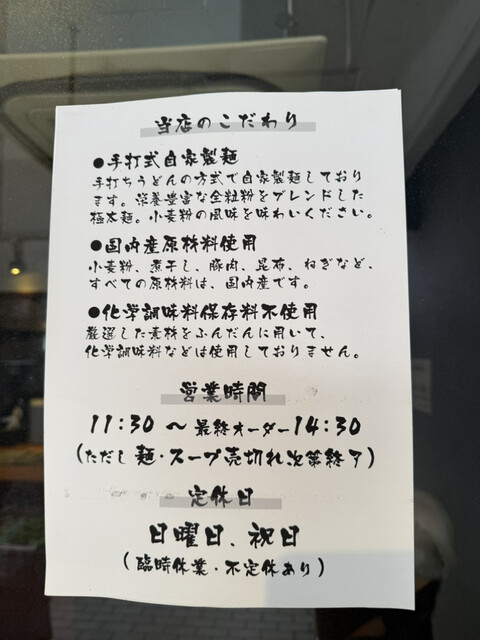 当店のこだわり
●手打式自家製麺
手打ちうどんの方式で自家製麺しており
ます。栄養豊富な全粒粉をブレンドした
極太麺。小麦粉の風味を味わいください。
●国内産原材料使用
小麦粉、煮干し、豚肉、昆布、ねぎなど、
すべての原材料は、国内産です。
●化学調味料保存料不使用
厳選した素材をふんだんに用いて、
化学調味料などは使用しておりません。
営業時間
11:30 〜 最終オーダー14:30
(ただし 麺・スープ売切れ次第終了)
定休日
日曜日、祝日
(臨時休業・不定休あり)